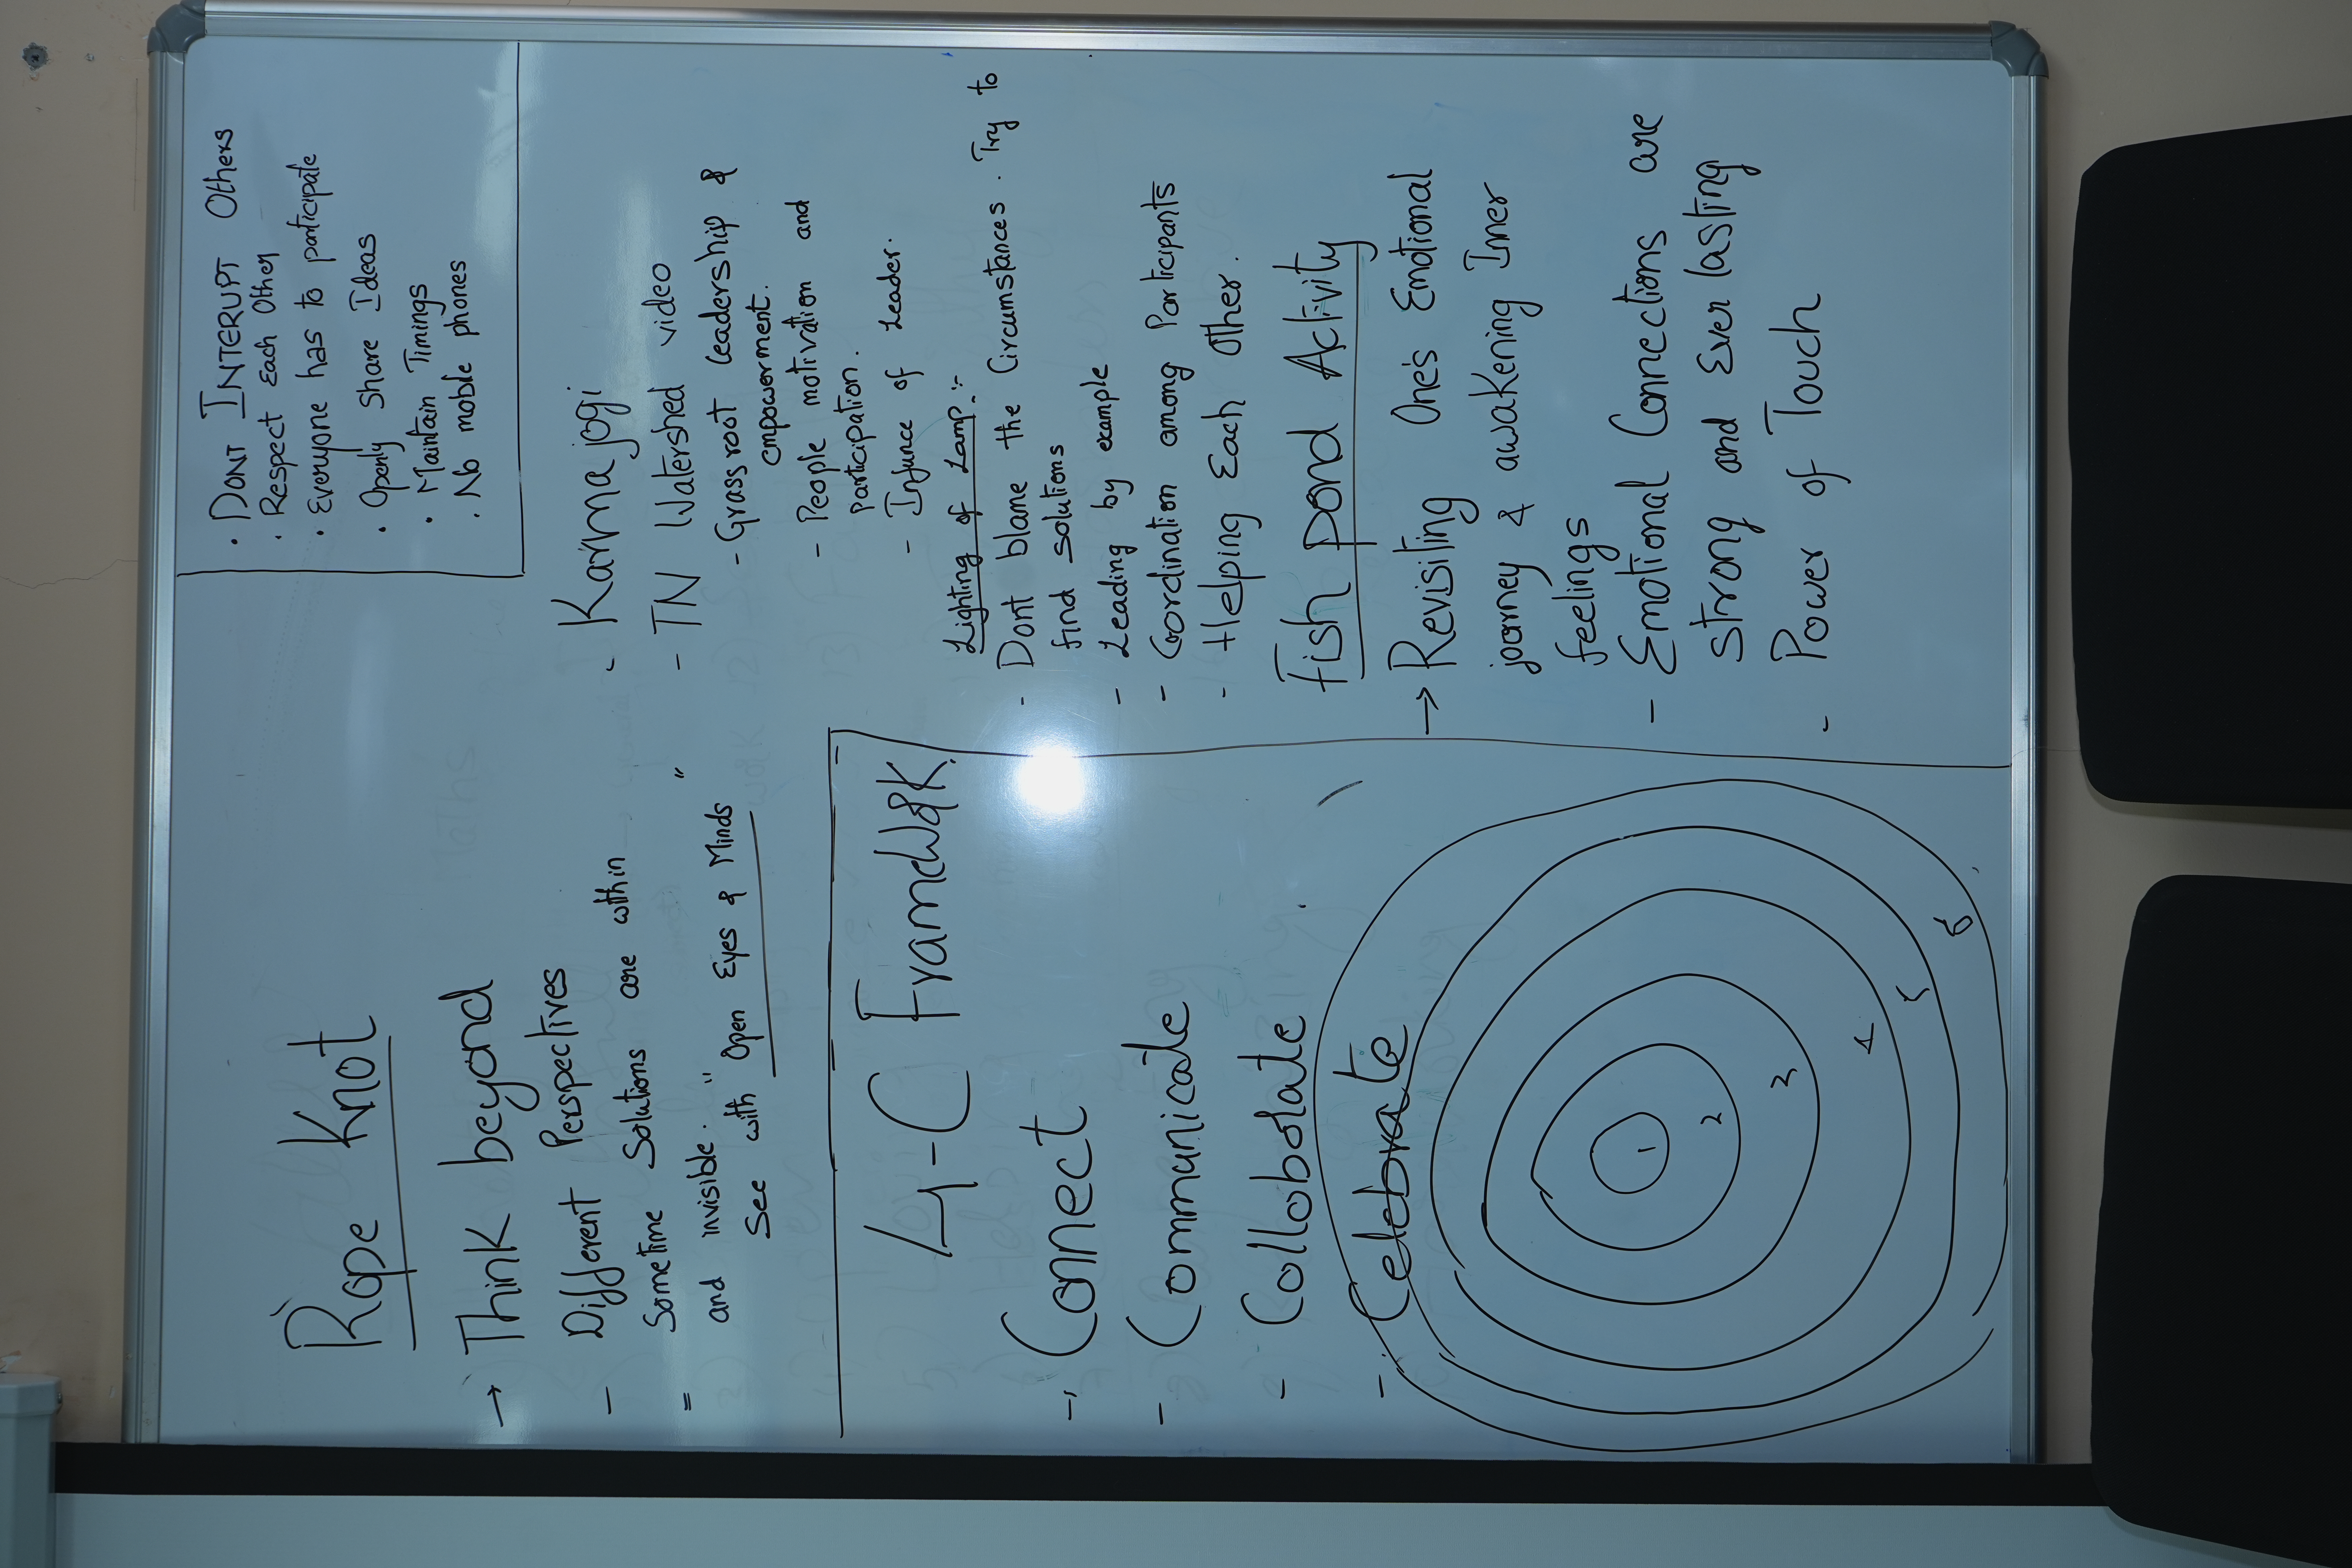 Rope Knot
→ Think beyond
- Different Perspectives
= Sometime Solutions are within
and invisible. "
See with "Open Eyes & Minds"
4-C Framework
- Connect
- Communicate
- Collobolate
- Celebrate
1
2
3
4
5
6
· DONT INTERUPT Others
· Respect Each Other
· Everyone has to participate
· Openly Share Ideas
· Maintain Timings
· No mobile phones
- Karmajogi
- TN Watershed video
- Grassroot Leadership &
empowerment.
- People motivation and
participation.
- Infunce of Leader.
Lighting of Lamp:-
- Dont blame the Circumstances. Try to
find solutions
- Leading by example
- Coordination among Participants
- Helping Each Other.
Fish pond Activity
→ Revisiting One's Emotional
journey & awakening Inner
feelings
- Emotional Connections are
strong and Ever lasting
- Power of Touch